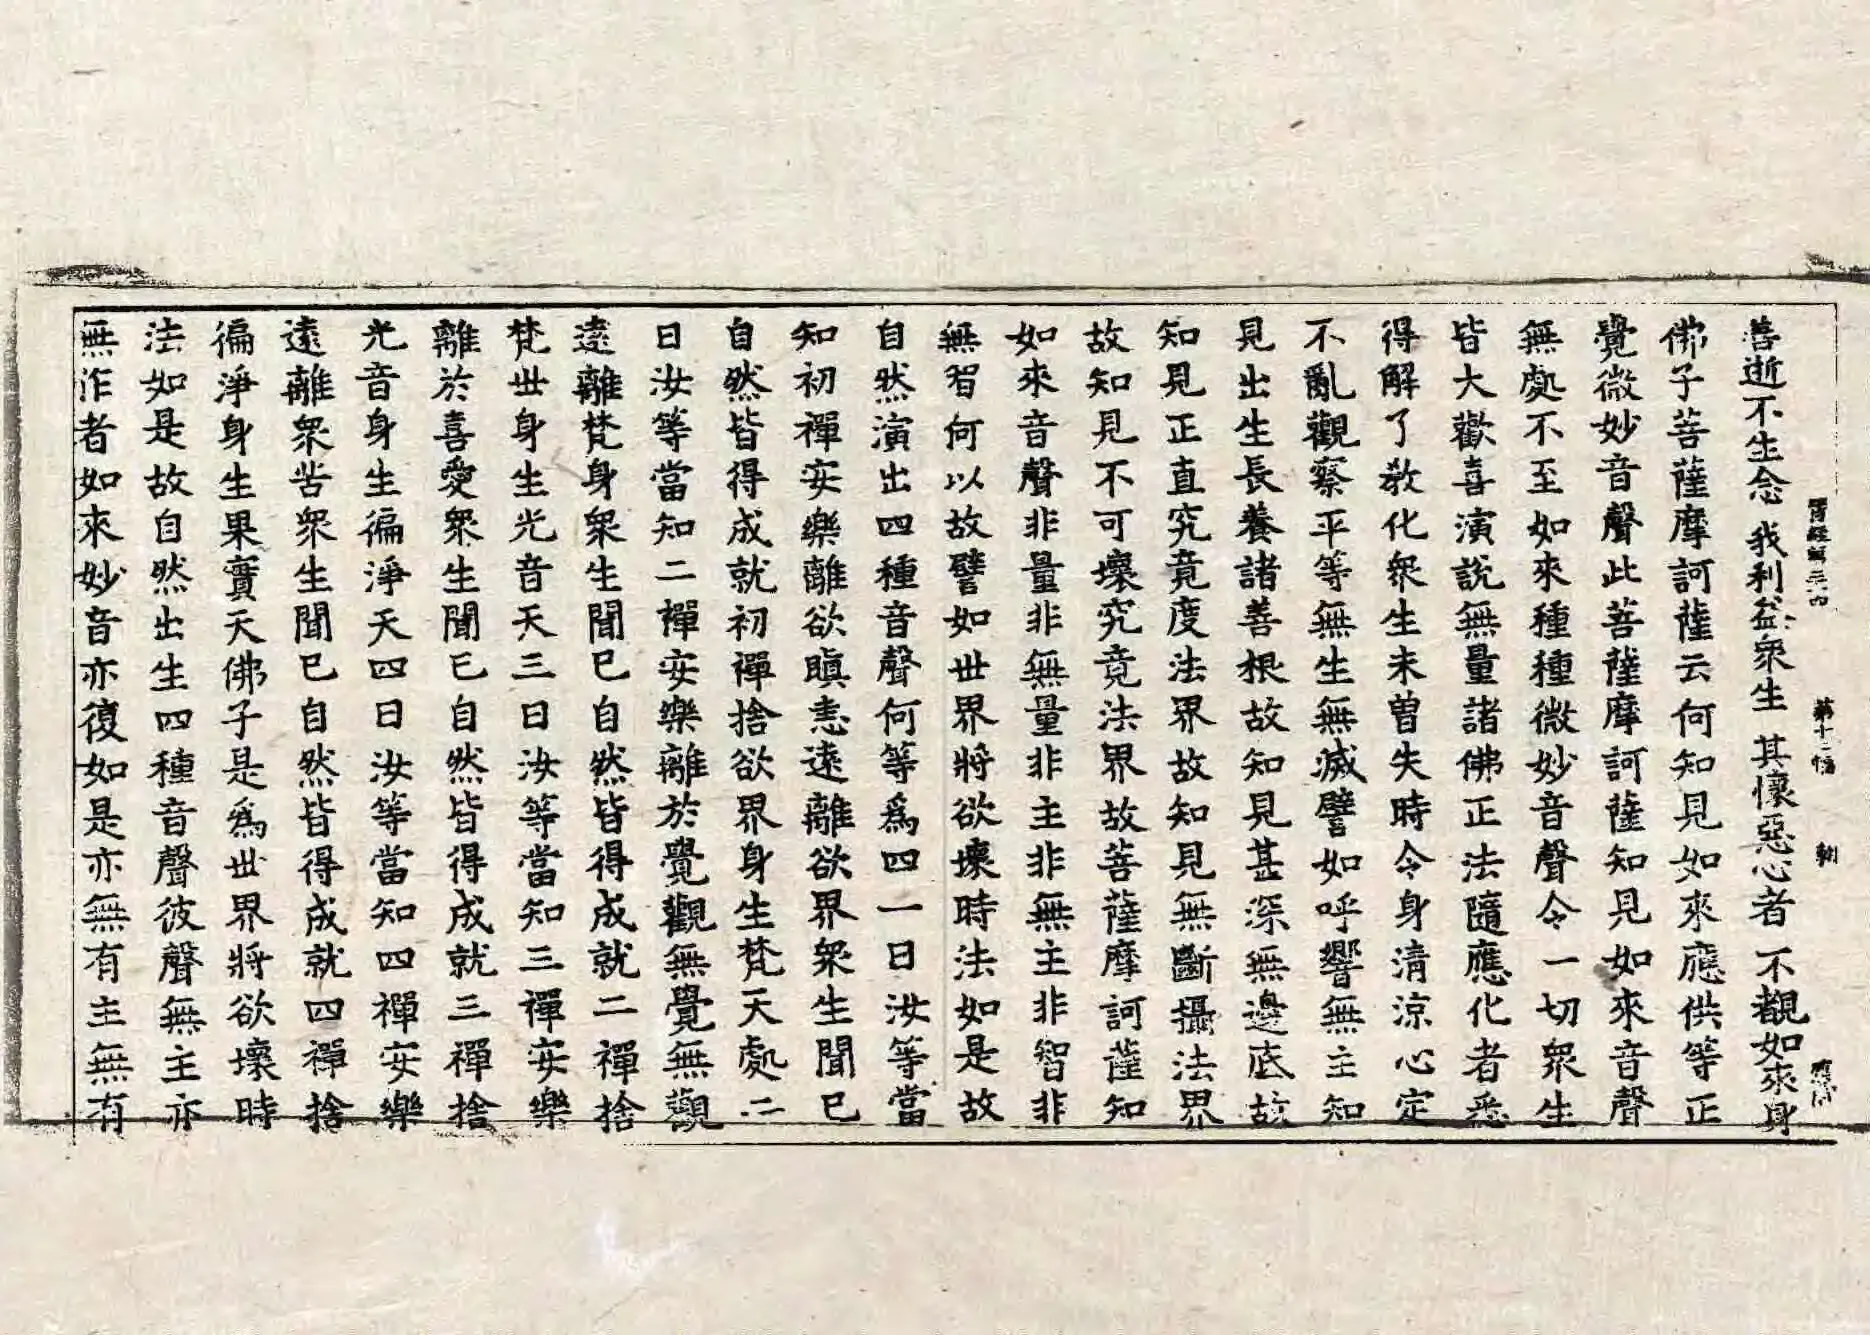 晉經第三十四 第十二張 朝
善逝不生念 我利益衆生 其懷惡心者 不覩如來身
佛子菩薩摩訶薩云何知見如來應供等正
覺微妙音聲此菩薩摩訶薩知見如來音聲
無處不至如來種種微妙音聲令一切衆生
皆大歡喜演說無量諸佛正法隨應化者悉
得解了敎化衆生未曾失時令身清涼心定
不亂觀察平等無生無滅譬如呼響無主知
見出生長養諸善根故知見甚深無邊底故
知見正直究竟度法界故知見無斷攝法界
故知見不可壞究竟法界故菩薩摩訶薩知
如來音聲非量非無量非主非無主非智非
無智何以故譬如世界將欲壞時法如是故
自然演出四種音聲何等爲四一曰汝等當
知初禪安樂離欲瞋恚遠離欲界衆生聞已
自然皆得成就初禪捨欲界身生梵天處二
曰汝等當知二禪安樂離於覺觀無覺無觀
遠離梵身衆生聞已自然皆得成就二禪捨
梵世身生光音天三曰汝等當知三禪安樂
離於喜愛衆生聞已自然皆得成就三禪捨
光音身生徧淨天四曰汝等當知四禪安樂
遠離衆苦衆生聞已自然皆得成就四禪捨
徧淨身生果實天佛子是爲世界將欲壞時
法如是故自然出生四種音聲彼聲無主亦
無作者如來妙音亦復如是亦無有主無有